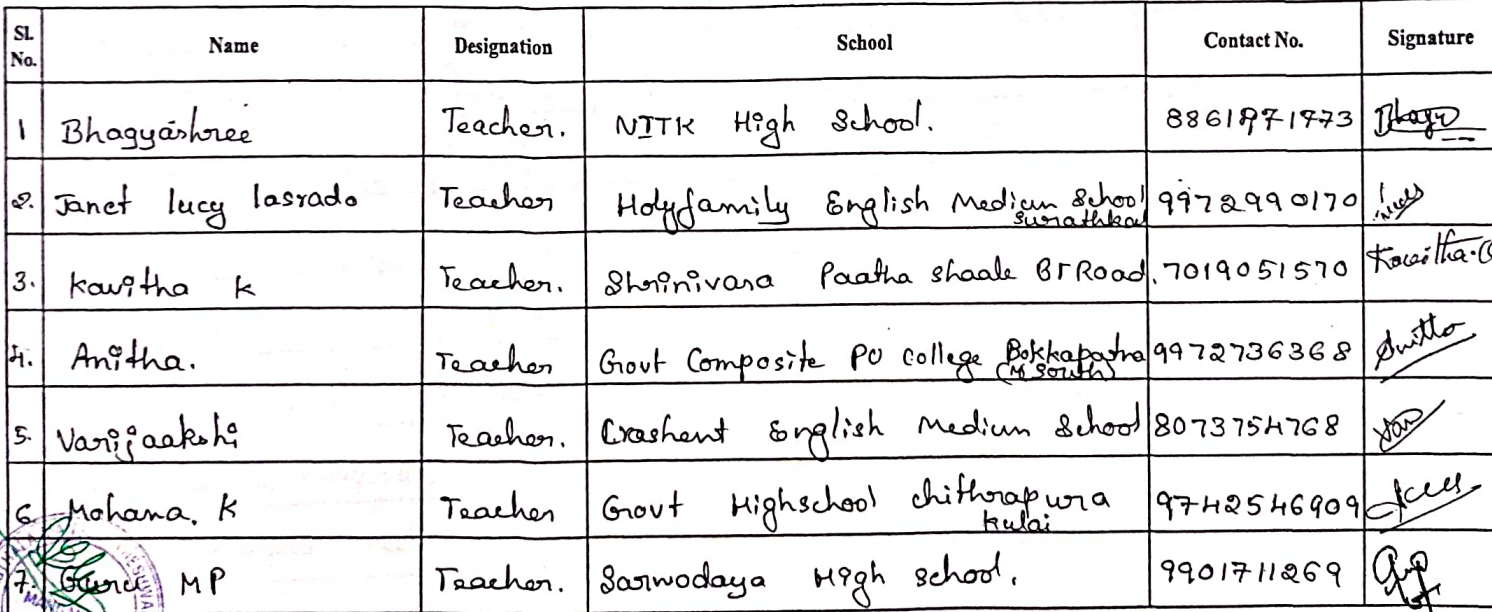 Sl. No. Name Designation School Contact No. Signature
1 Bhagyashree Teacher. NITK High School. 8861971773
2. Janet lucy lasrado Teacher Holyfamily English Medium School 9972990170
Surathkal
3. Kavitha K Teacher. Shrinivasa Paatha shaale BT Road. 7019051570 Kavitha.
4. Anitha. Teacher Govt Composite PU College Bokkapatna 9972736368
(M South)
5. Varijaakshi Teacher. Crashent English Medium School 8073754768
6 Mohana. K Teacher Govt Highschool chithrapura 9742546909
Kulai
7. Guru MP Teacher. Sarwodaya High school. 9901711269